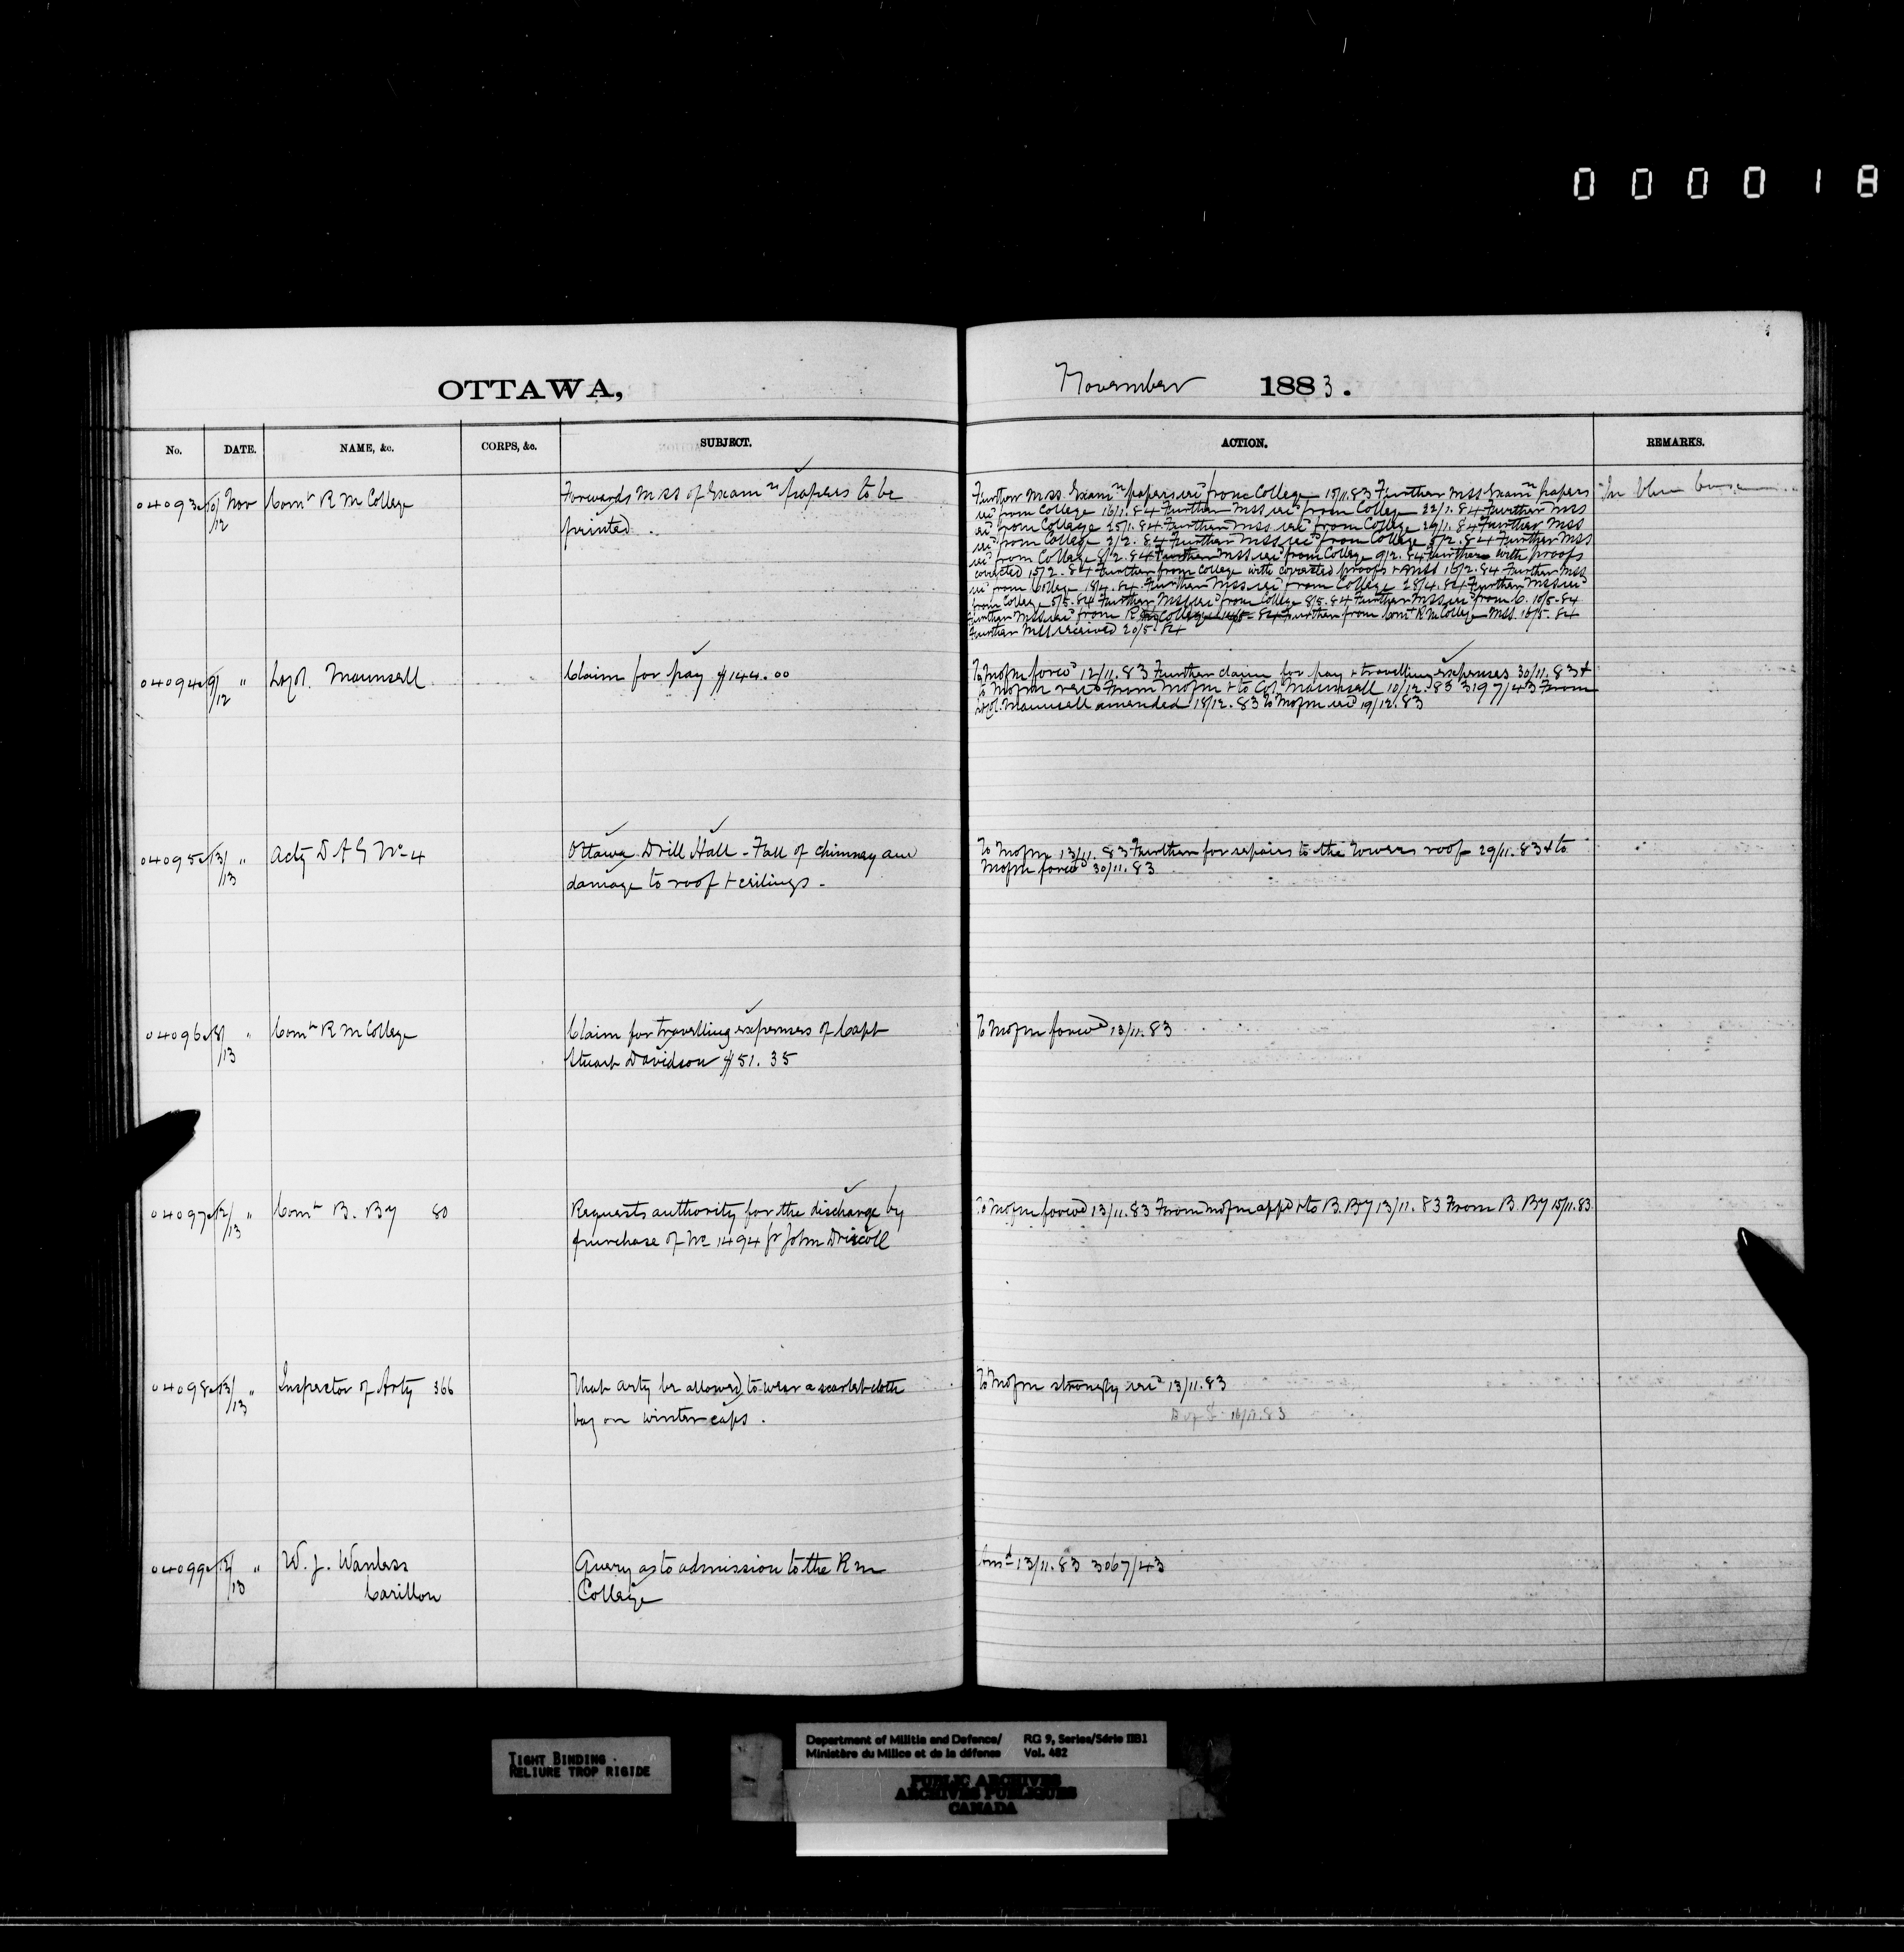 0 0 0 0 1 8
OTTAWA,
November 1883.
No. DATE. NAME, &c. CORPS, &c. SUBJECT. ACTION. REMARKS.
04093 10/12 Nov Comt R M College
Forwards Mss of Examn papers to be
printed.
Further Mss Examn papers recd from College 15/11.83 Further Mss Examn papers
recd from College 16/1.84 Further Mss recd from College 22/1.84 Further Mss
recd from College 25/1.84 Further Mss recd from College 29/1.84 Further Mss
recd from College 2/2.84 Further Mss recd from College 5/2.84 Further Mss
recd from College 8/2.84 Further Mss recd from College 9/2.84 Further with proofs
corrected 15/2.84 Further from College with corrected proofs + Mss 16/2.84 Further Mss
recd from College 18/4.84 Further Mss recd from College 28/4.84 Further Mss recd
from College 5/5.84 Further Mss recd from College 8/5.84 Further Mss recd from C. 10/5.84
Further Mss recd from R M College 14/5.84 Further from Comt R M College Mss 16/5.84
Further Mss received 20/5.84
In blue
04094 9/12 " Lt Col. Maunsell
Claim for pay $144.00
To Mofm forwd 12/11.83 Further claim for pay + travelling expenses 30/11.83 +
to Mofm recd From Mofm + to Col. Maunsell 10/12.83 3197/43 From
Lt Col. Maunsell amended 18/12.83 To Mofm recd 19/12.83
04095 13/13 " Actg D A G No 4
Ottawa Drill Hall - Fall of chimney and
damage to roof + ceilings -
To Mofm 13/11.83 Further for repairs to the Towers roof 29/11.83 + to
Mofm forwd 30/11.83
04096 8/13 " Comt R M College
Claim for travelling expenses of Capt
Stuart Davidson $51.35
To Mofm forwd 13/11.83
04097 12/13 " Comt B. By 80
Requests authority for the discharge by
purchase of No 1494 Gr John Driscoll
To Mofm forwd 13/11.83 From Mofm appd + to B. By 13/11.83 From B. By 15/11.83
04098 13/13 " Inspector of Arty 366
That Arty be allowed to wear a scarlet cloth
bag on winter caps.
To Mofm strongly recd 13/11.83
16/11.83
04099 12/13 " W. J. Wanless
Carillon
Query as to admission to the R M
College
Ansd 13/11.83 3067/43
TIGHT BINDING
RELIURE TROP RIGIDE
Department of Militia and Defence/ RG 9, Series/Série IIB1
Ministère du Milice et de la défense Vol. 482
PUBLIC ARCHIVES
ARCHIVES PUBLIQUES
CANADA